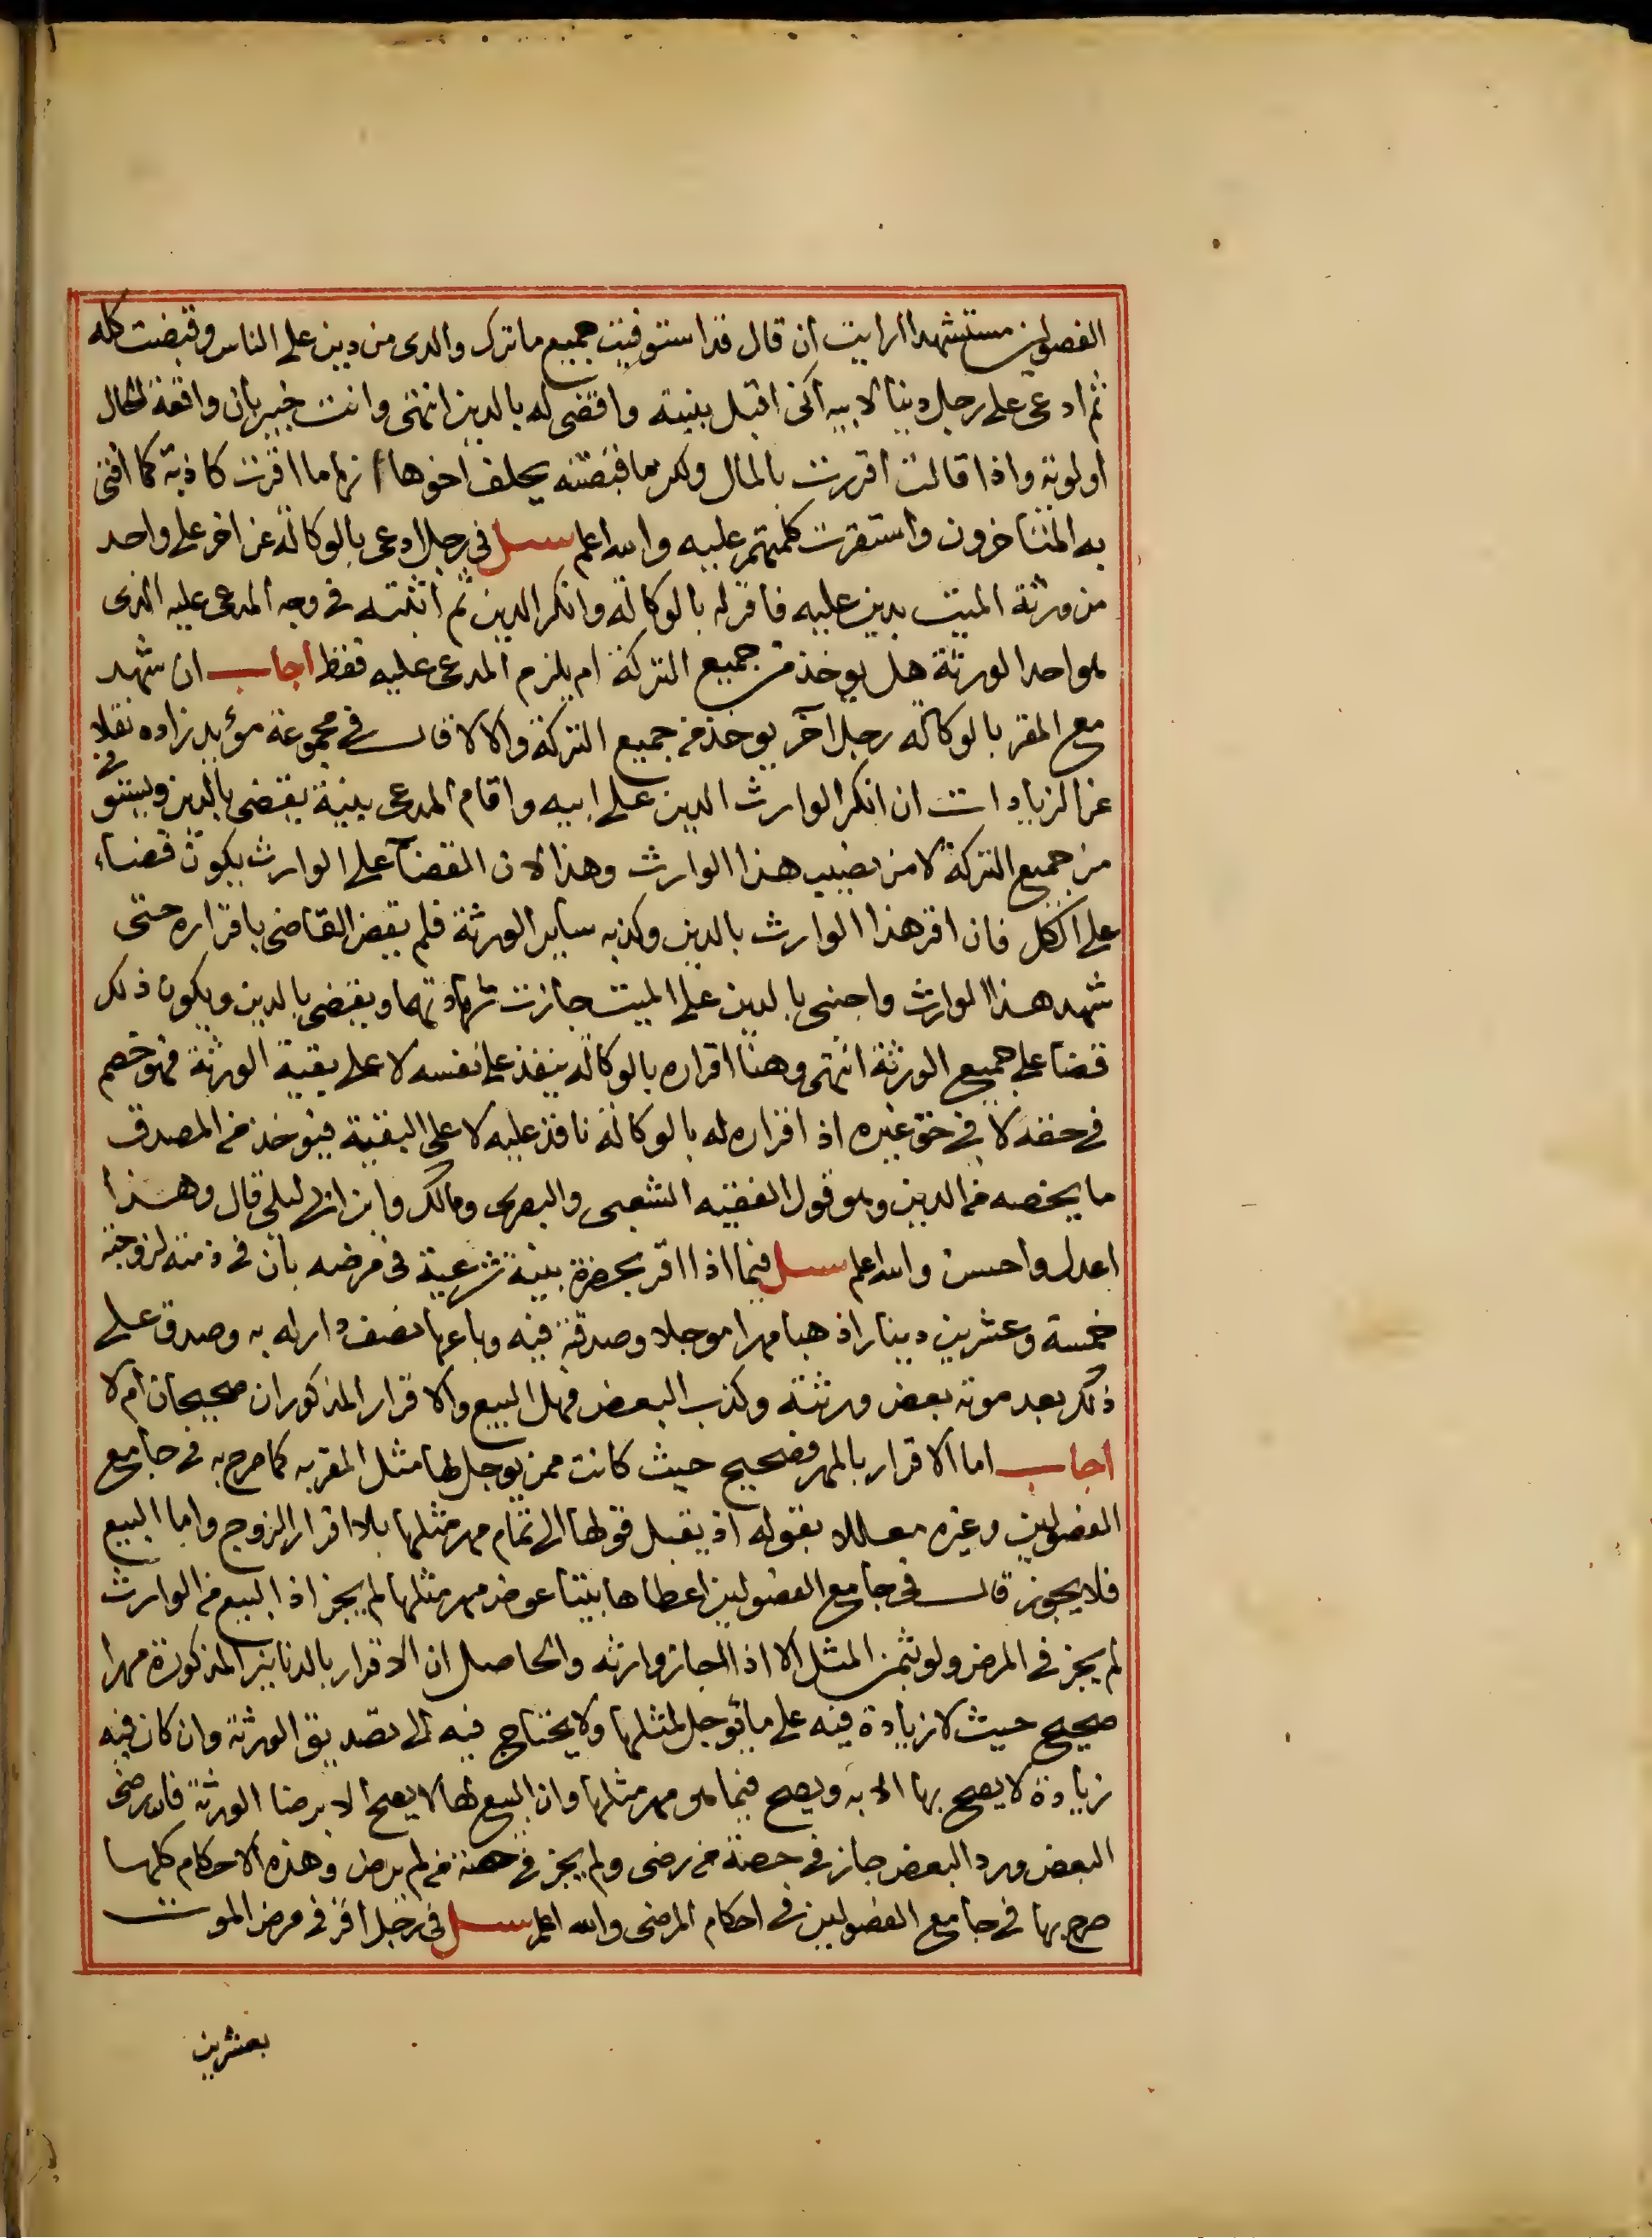 الفصولين مستشهدا ارايت ان قال قد استوفيت جميع ما ترك والدى من دين على الناس وقبضت كله
ثم ادعى على رجل دينا لابيه اكنى اقبل بينته واقضى له بالدين انتهى وانت خبير بان واقعة الحال
اولوية واذا قالت اقررت بالمال ولكن ما قبضته يحلف اخوها انها ما اقرت كاذبة كما افتى
به المتاخرون واستقرت كلمتهم عليه والله اعلم سئل فى رجل ادعى بالوكالة عن اخر على واحد
من ورثة الميت بدين عليه فاقر له بالوكالة وانكر الدين ثم اثبته فى وجه المدعى عليه الذى
هو احد الورثة هل يوخذ من جميع التركة ام يلزم المدعى عليه فقط اجاب ان شهد
مع المقر بالوكالة رجل آخر يوخذ من جميع التركة والا لا قال فى مجموعة مؤيد زاده نقلا
عن الزيادات ان انكر الوارث الدين على ابيه واقام المدعى بينة يقضى بالدين ويستوفى
من جميع التركة لا من نصيب هذا الوارث وهذا لان القضآ على الوارث يكون قضاء
على الكل فان اقر هذا الوارث بالدين وكذبه ساير الورثة فلم يقض القاضى باقراره حتى
شهد هذا الوارث واجنبى بالدين على الميت جازت شهادتهما ويقضى بالدين ويكون ذلك
قضا على جميع الورثة انتهى وهنا اقراره بالوكالة ينفذ على نفسه لا على بقية الورثة فهو خصم
فى حقه لا فى حق غيره اذ اقراره له بالوكالة نافذ عليه لا على البقية فيوخذ من المصدق
ما يخصه من الدين وهو قول الفقيه الشعبى والبصرى ومالك وابن ابى ليلى قال وهذا
اعدل واحسن والله اعلم سئل فيما اذا اقر بحضرة بينة شرعية فى مرضه بان فى ذمته لزوجته
خمسة وعشرين دينارا ذهبا مهرا موجلا وصدقته فيه وباعها نصف دار له به وصدق على
ذلك بعد موته بعض ورثته وكذب البعض فهل البيع والاقرار المذكوران صحيحان ام لا
اجاب اما الاقرار بالمهر فصحيح حيث كانت ممن يوجل لها مثل المقر به كما صرح به فى جامع
الفصولين وغيره معللا بقوله اذ يقبل قولها الى تمام مهر مثلها بلا اقرار الزوج واما البيع
فلا يجوز قال فى جامع الفصولين اعطاها بيتا عوض مهر مثلها لم يجز اذ البيع من الوارث
لم يجز فى المرض ولو بثمن المثل الا اذا اجاز وارثه والحاصل ان الاقرار بالدنانير المذكورة مهرا
صحيح حيث لا زيادة فيه على ما يوجل لمثلها ولا يحتاج فيه الى تصديق الورثة وان كان فيه
زيادة لا يصح بها الا به ويصح فيما هو مهر مثلها وان البيع لها لا يصح الا برضا الورثة فان رضى
البعض ورد البعض جاز فى حصة من رضى ولم يجز فى حصة من لم يرض وهذه الاحكام كلها
صرح بها فى جامع الفصولين فى احكام المرضى والله اعلم سئل فى رجل اقر فى مرض الموت
بعشرين